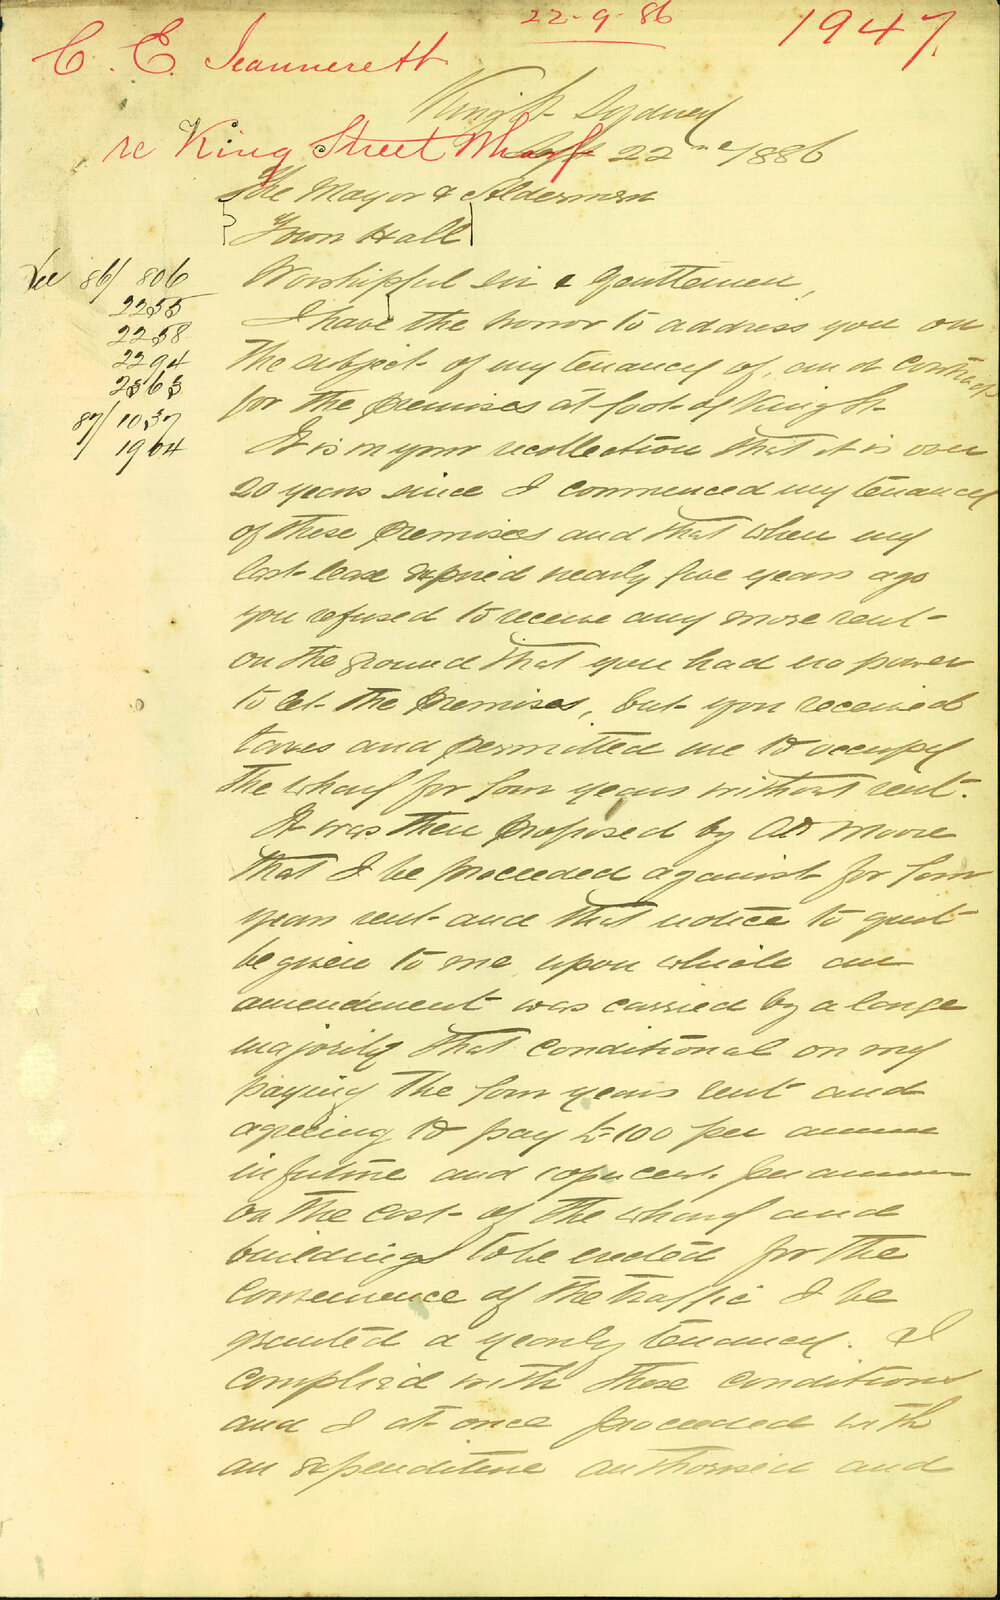 22-9-86
1947
C. E. Jeannerett
King St Sydney
re King Street Wharf
Sept 22nd 1886
The Mayor & Aldermen
Town Hall
See 86/ 806
2255
2258
2294
2363
87/1037
1904
Worshipful sir & Gentlemen,
I have the honor to address you on
the subject of my tenancy of, and contracts
for the premises at foot of King St.
It is in your recollection that it is over
20 years since I commenced my tenancy
of these premises and that when my
last lease expired nearly five years ago
you refused to receive any more rent
on the ground that you had no power
to let the premises, but you received
taxes and permitted me to occupy
the wharf for four years without rent.
It was then proposed by Ald Moore
that I be proceeded against for four
years rent and that notice to quit
be given to me upon which an
amendment was carried by a large
majority that conditional on my
paying the four years rent and
agreeing to pay £100 per annum
in future and 10 per cent. per annum
on the cost of the wharf and
buildings to be erected for the
convenience of the traffic I be
granted a yearly tenancy. I
complied with these conditions
and I at once proceeded with
an expenditure authorised and